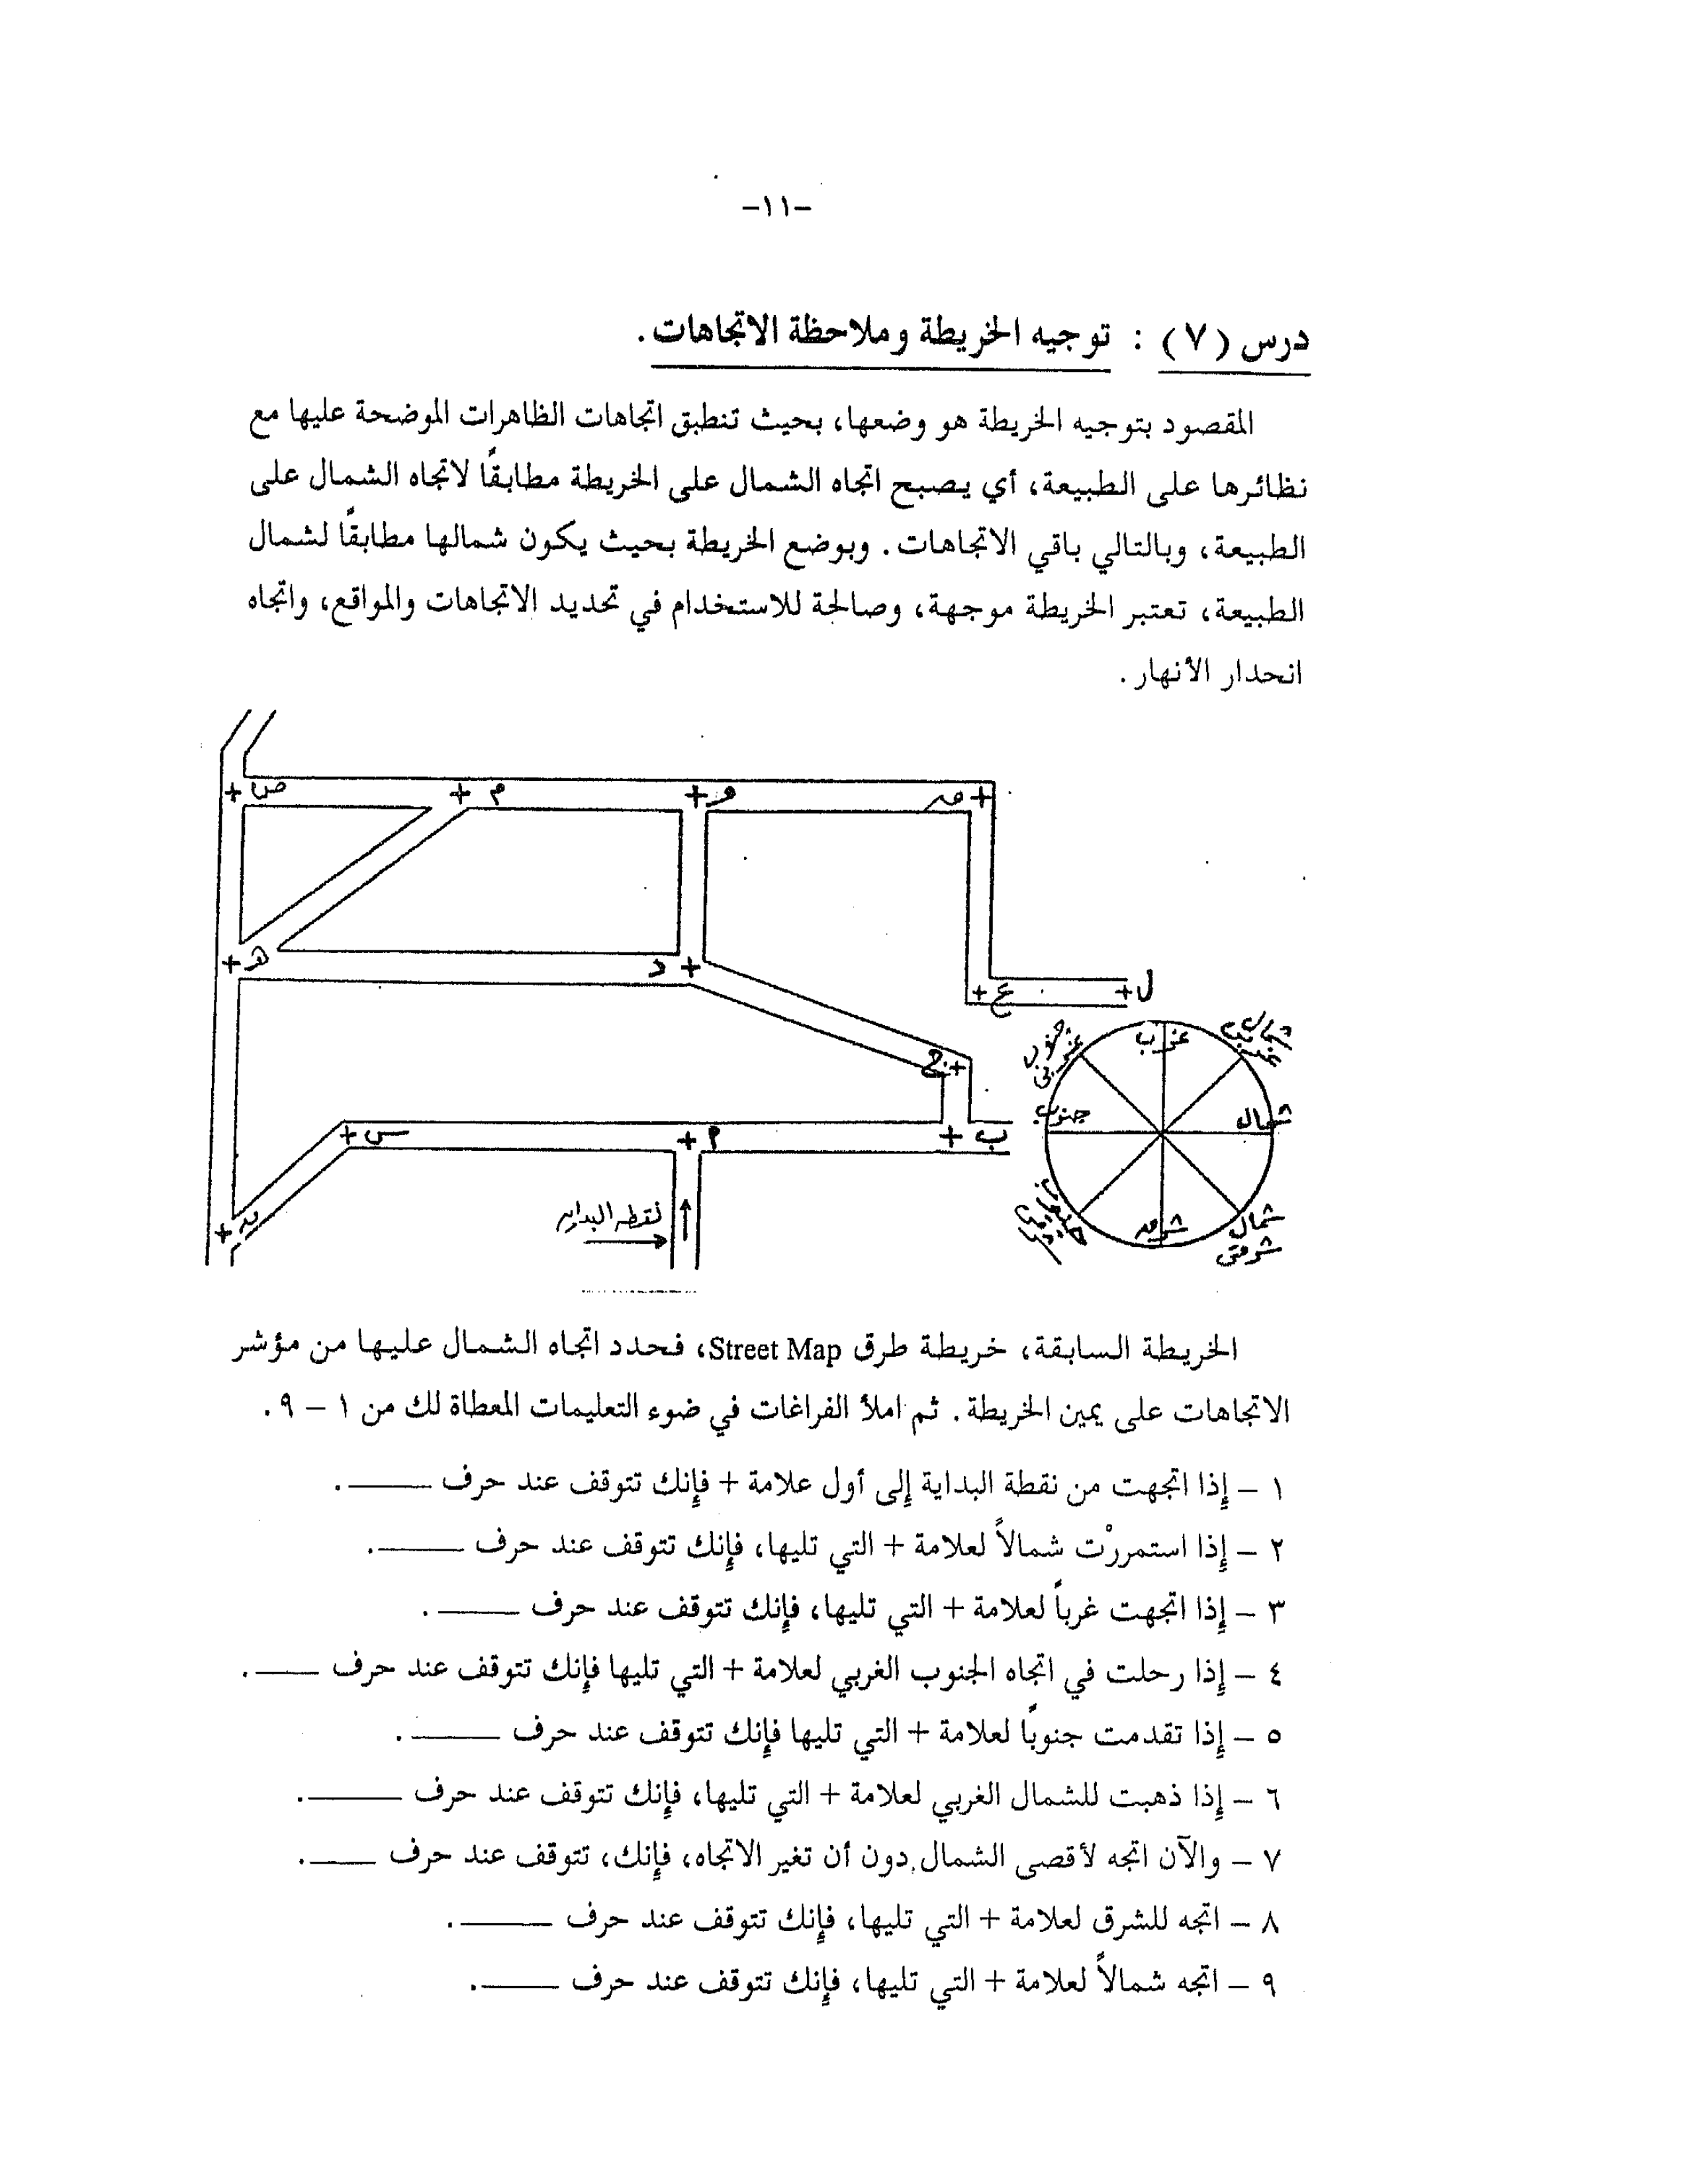 -١١-
درس (٧) : توجيه الخريطة وملاحظة الاتجاهات.
المقصود بتوجيه الخريطة هو وضعها، بحيث تنطبق اتجاهات الظاهرات الموضحة عليها مع
نظائرها على الطبيعة، أي يصبح اتجاه الشمال على الخريطة مطابقًا لاتجاه الشمال على
الطبيعة، وبالتالي باقي الاتجاهات. وبوضع الخريطة بحيث يكون شمالها مطابقًا لشمال
الطبيعة، تعتبر الخريطة موجهة، وصالحة للاستخدام في تحديد الاتجاهات والمواقع، واتجاه
انحدار الأنهار.
+ ص
+ م
+ و
+
+ هـ
د +
+ ع
+ ل
ج +
+ س
+ م
+ ب
+
نقطة البداية
غرب
شمال غربي
شمال
شمال شرقي
شرق
جنوب شرقي
جنوب
جنوب غربي
الخريطة السابقة، خريطة طرق Street Map، فحدد اتجاه الشمال عليها من مؤشر
الاتجاهات على يمين الخريطة. ثم املأ الفراغات في ضوء التعليمات المعطاة لك من ١ – ٩.
١ – إذا اتجهت من نقطة البداية إلى أول علامة + فإنك تتوقف عند حرف ____.
٢ – إذا استمررْت شمالاً لعلامة + التي تليها، فإنك تتوقف عند حرف ____.
٣ – إذا اتجهت غرباً لعلامة + التي تليها، فإنك تتوقف عند حرف ____.
٤ – إذا رحلت في اتجاه الجنوب الغربي لعلامة + التي تليها فإنك تتوقف عند حرف ____.
٥ – إذا تقدمت جنوبًا لعلامة + التي تليها فإنك تتوقف عند حرف ____.
٦ – إذا ذهبت للشمال الغربي لعلامة + التي تليها، فإنك تتوقف عند حرف ____.
٧ – والآن اتجه لأقصى الشمال دون أن تغير الاتجاه، فإنك، تتوقف عند حرف ____.
٨ – اتجه للشرق لعلامة + التي تليها، فإنك تتوقف عند حرف ____.
٩ – اتجه شمالاً لعلامة + التي تليها، فإنك تتوقف عند حرف ____.